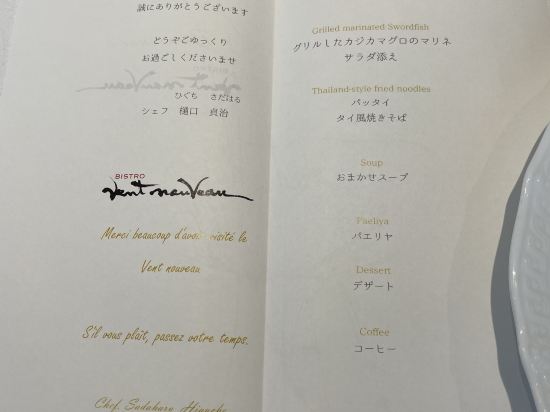 誠にありがとうございます
どうぞごゆっくり
お過ごしくださいませ
ひぐち さだはる
シェフ 樋口 貞治
BISTRO
Vent nouveau
Merci beaucoup d'avoir visité le
Vent nouveau
S'il vous plaît, passez votre temps.
Chef. Sadaharu Higuchi
Grilled marinated Swordfish
グリルしたカジカマグロのマリネ
サラダ添え
Thailand-style fried noodles
パッタイ
タイ風焼きそば
Soup
おまかせスープ
Paeliya
パエリヤ
Dessert
デザート
Coffee
コーヒー